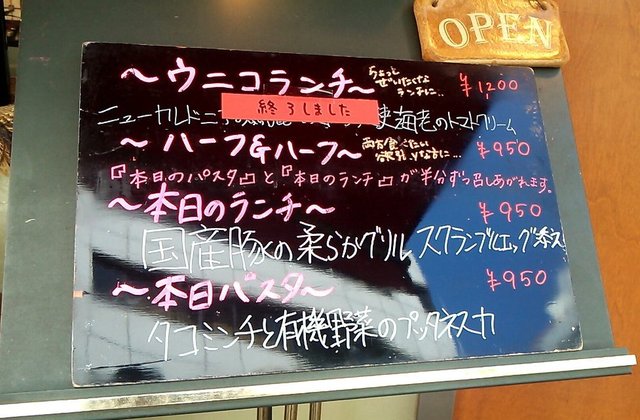 OPEN
～ウニコランチ～ ちょっと ぜいたくな ランチに… ¥1,200
終了しました
ニューカルドニ 海老のトマトクリーム
～ハーフ&ハーフ～ 両方食べたい 欲張りな方に… ¥950
『本日のパスタ』と『本日のランチ』が半分ずつ召しあがれます。
～本日のランチ～ ¥950
国産豚の柔らかグリル スクランブルエッグ添え
～本日パスタ～ ¥950
タコミンチと有機野菜のプッタネスカ